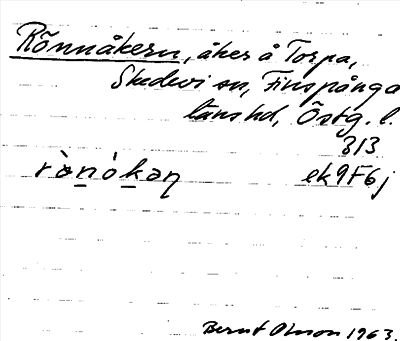 Rönnåkern, åker å Torpa,
Skedevi sn, Finspånga
läns hd, Östg. l.
313
rə̀nókəɳ ek9F6j
Bernt Olsson 1963.